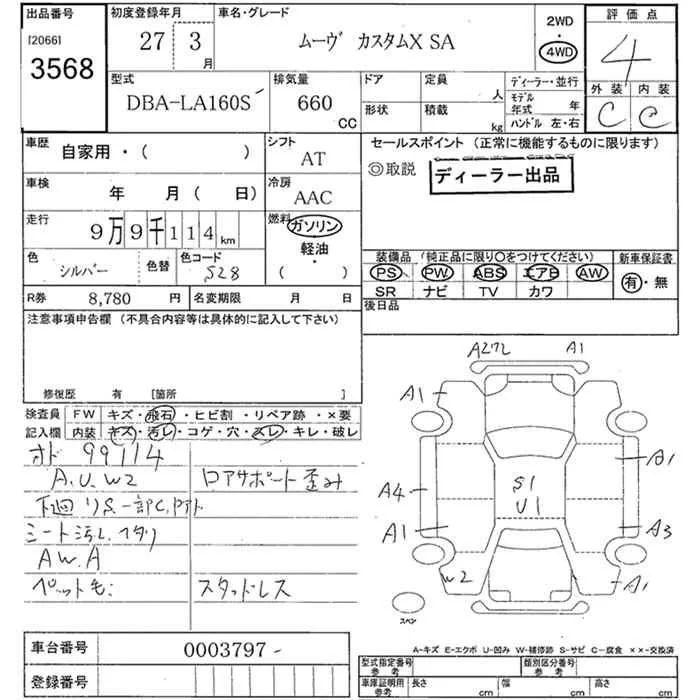 出品番号
[2066]
3568
初度登録年月
27 3
月
車名・グレード
ムーヴ カスタムX SA
2WD
・
4WD
評価点
4
外装 内装
C C
型式
DBA-LA160S
排気量
660
CC
ドア
定員
人
形状
積載
kg
ディーラー・並行
モデル
年式 年
ハンドル 左・右
車歴
自家用・( )
シフト
AT
車検
年 月( 日)
冷房
AAC
走行
9万9千114km
燃料
ガソリン
軽油
・
( )
色
シルバー
色替
色コード
S28
R券
8,780 円
名変期限 月 日
セールスポイント (正常に機能するものに限ります)
◎取説
ディーラー出品
装備品 (純正品に限り○をつけてください)
PS PW ABS エアB AW
SR ナビ TV カワ
新車保証書
有・無
後日品
注意事項申告欄 (不具合内容等は具体的に記入して下さい)
修復歴 有 [箇所 ]
検査員
記入欄
FW キズ・飛石・ヒビ割・リペア跡・×要
内装 キズ・汚レ・コゲ・穴・スレ・キレ・破レ
オド 99114
A.U.W2
コアサポート歪み
下廻りS.一部C.
シート汚レ.
AW.A
ペット毛:
スタッドレス
A272 A1
A1
A1
A4
S1
U1
A1
A3
W2
A1
スペン
A-キズ E-エクボ U-凹み W-補修跡 S-サビ C-腐食 ××-交換済
車台番号
0003797-
登録番号
型式指定番号
参考
類別区分番号
参考
車庫証明用
参考
長さ cm
幅 cm
高さ cm